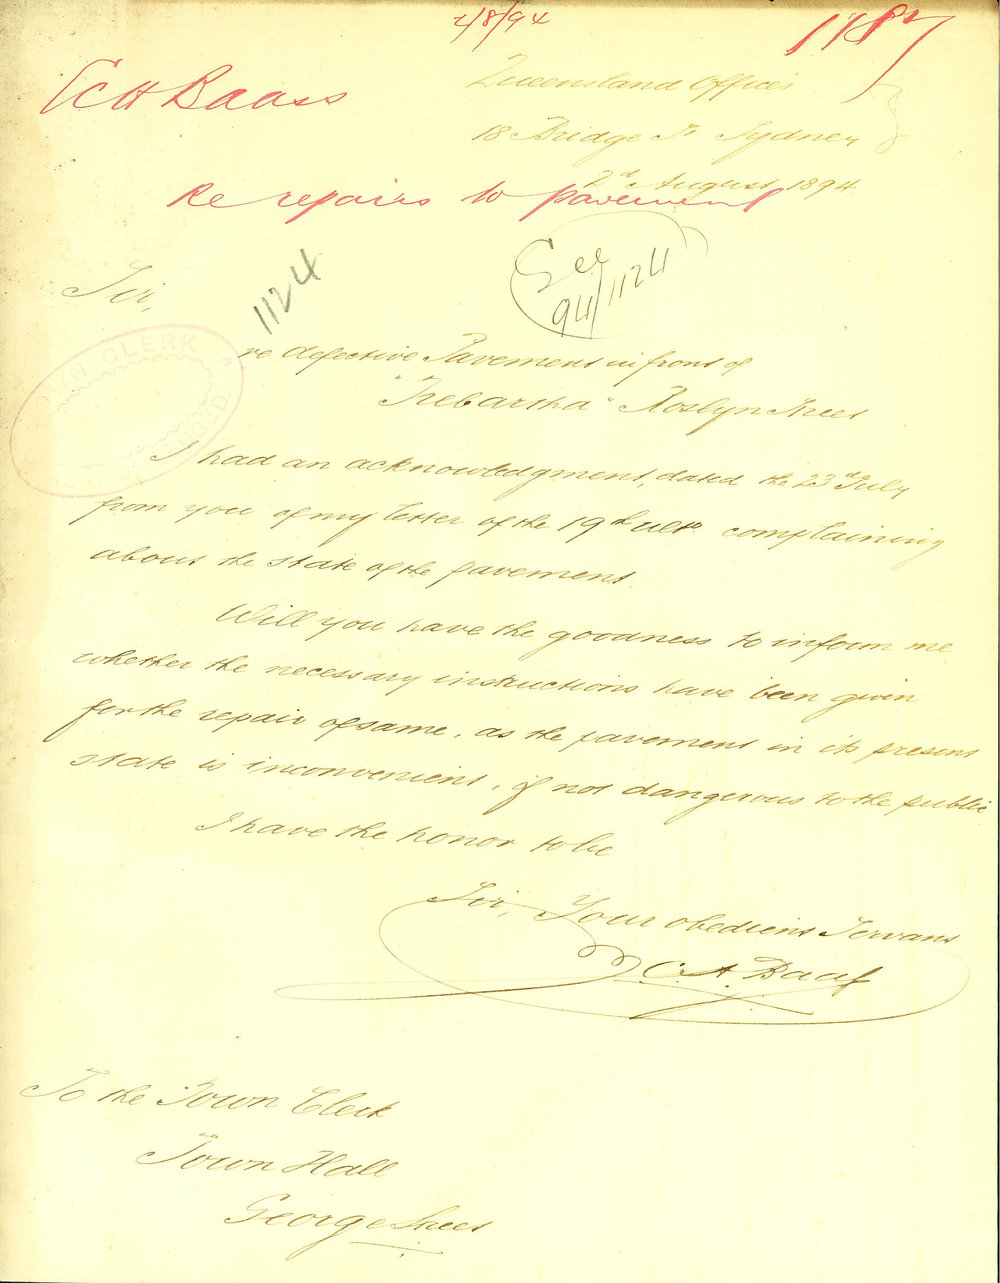 2/8/94
1187
C H Baass
Queensland Offices
18 Bridge St Sydney
2nd August 1894
Re repairs to pavement
See
94/1124
1124
Sir,
TOWN CLERK
re defective Pavement in front of
"Trebartha" Roslyn Street
I had an acknowledgment, dated the 23rd July
from you of my letter of the 19th ulto complaining
about the state of the pavement.
Will you have the goodness to inform me
whether the necessary instructions have been given
for the repair of same, as the pavement in its present
state is inconvenient, if not dangerous to the public
I have the honor to be
Sir, Your obedient Servant
C. A. Baass
To the Town Clerk
Town Hall
George Street